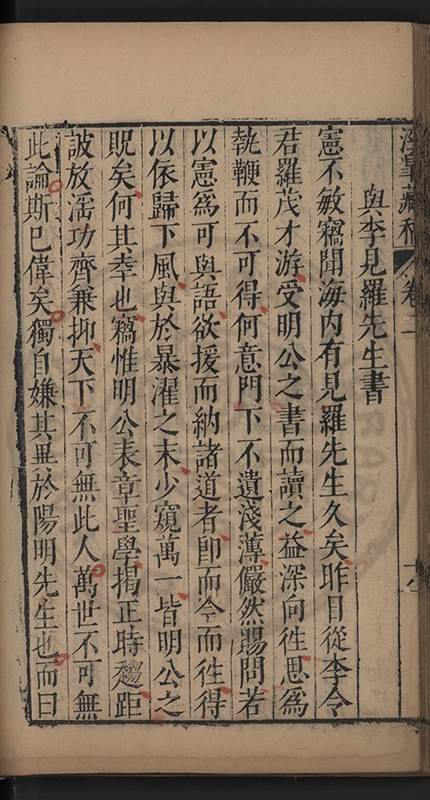 涇臯藏稿 卷二
與李見羅先生書
憲不敏竊聞海内有見羅先生久矣昨日從李令
君羅茂才游受明公之書而讀之益深向徃思爲
執鞭而不可得何意門下不遺淺薄儼然賜問若
以憲爲可與語欲援而納諸道者卽而今而徃得
以依歸下風與於暴濯之末少窺萬一皆明公之
貺矣何其幸也竊惟明公表章聖學揭正時趨距
詖放滛功齊兼抑天下不可無此人萬世不可無
此論斯已偉矣獨自嫌其異於陽明先生也而曰